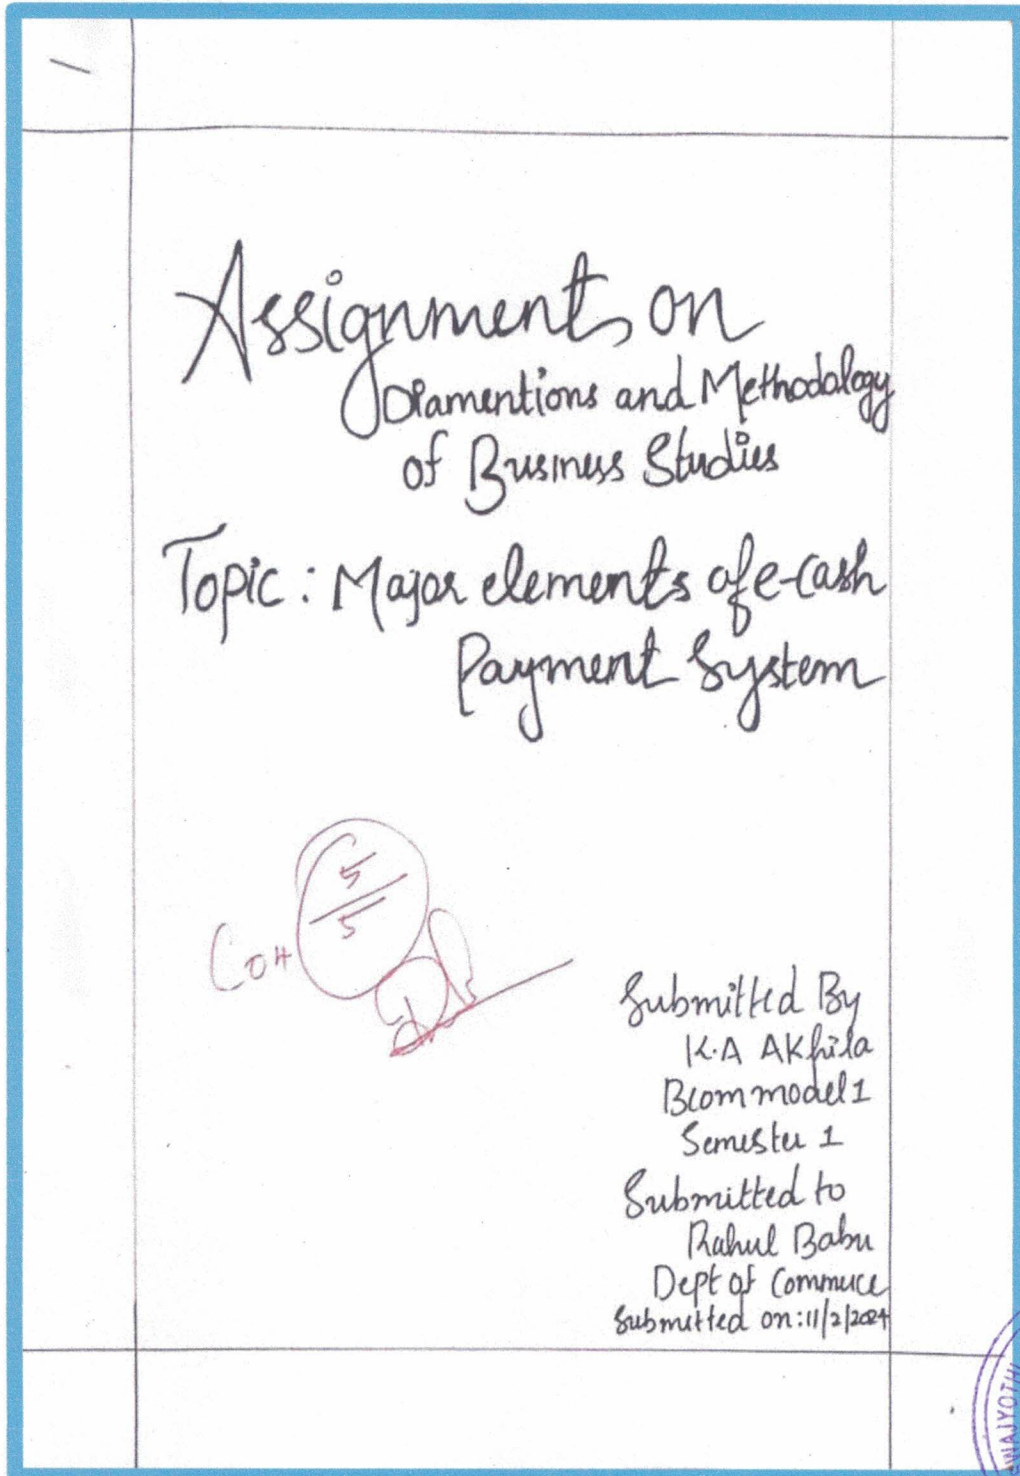 Assignment on
Diamentions and Methodology
of Business Studies
Topic : Major elements of e-cash
Payment System
5
5
CO4
Submitted By
K.A AKhila
Bcom model 1
Semester 1
Submitted to
Rahul Babu
Dept of Commerce
Submitted on:11/2/2024